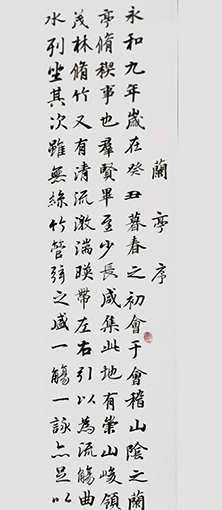 蘭亭序
永和九年歲在癸丑暮春之初會于會稽山陰之蘭
亭脩稧事也羣賢畢至少長咸集此地有崇山峻領
茂林脩竹又有清流激湍暎帶左右引以為流觴曲
水列坐其次雖無絲竹管弦之盛一觴一詠亦足以